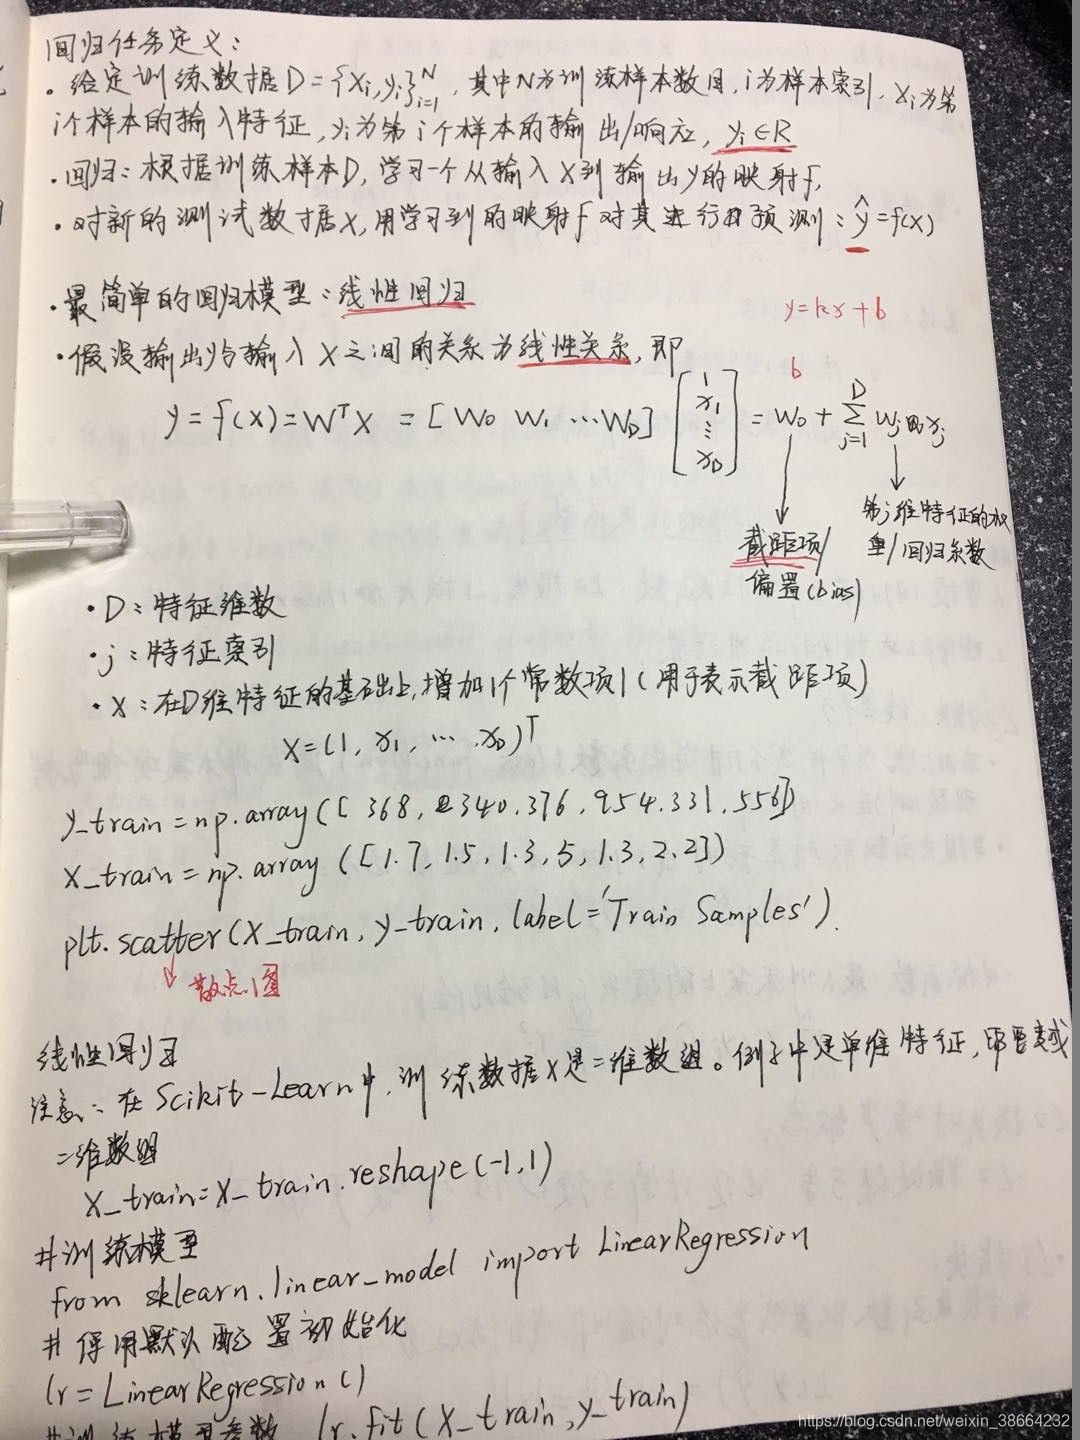 回归任务定义:
· 给定训练数据D={xi,yi}ᴺᵢ₌₁,其中N为训练样本数目,i为样本索引,xi为第
i个样本的输入特征,yi为第i个样本的输出/响应,yi∈R
· 回归:根据训练样本D,学习一个从输入X到输出y的映射f,
· 对新的测试数据x,用学习到的映射f对其进行预测:ŷ=f(x)
· 最简单的回归模型:线性回归
y=kx+b
· 假设输出y与输入X之间的关系为线性关系,即
b
y=f(x)=WᵀX=[W0 W1 ⋯WD] [1 x1 ⋮ xD] = W0 + ∑ᴰⱼ₌₁ Wj xj
截距项/
偏置(bias)
第j维特征的权
重/回归系数
· D:特征维数
· j:特征索引
· X:在D维特征的基础上,增加1个常数项1(用于表示截距项)
X=(1, x1, ⋯, xD)ᵀ
y_train=np.array([368,340,376,954,331,556])
X_train=np.array([1.7,1.5,1.3,5,1.3,2.2])
plt.scatter(X_train,y_train,label='Train Samples').
散点图
线性回归
注意:在Scikit-Learn中,训练数据X是二维数组。例子中是单维特征,即要变成
二维数组
X_train=X_train.reshape(-1,1)
#训练模型
from sklearn.linear_model import LinearRegression
#使用默认配置初始化
lr=LinearRegression()
#训练模型参数 lr.fit(X_train,y_train)
https://blog.csdn.net/weixin_38664232